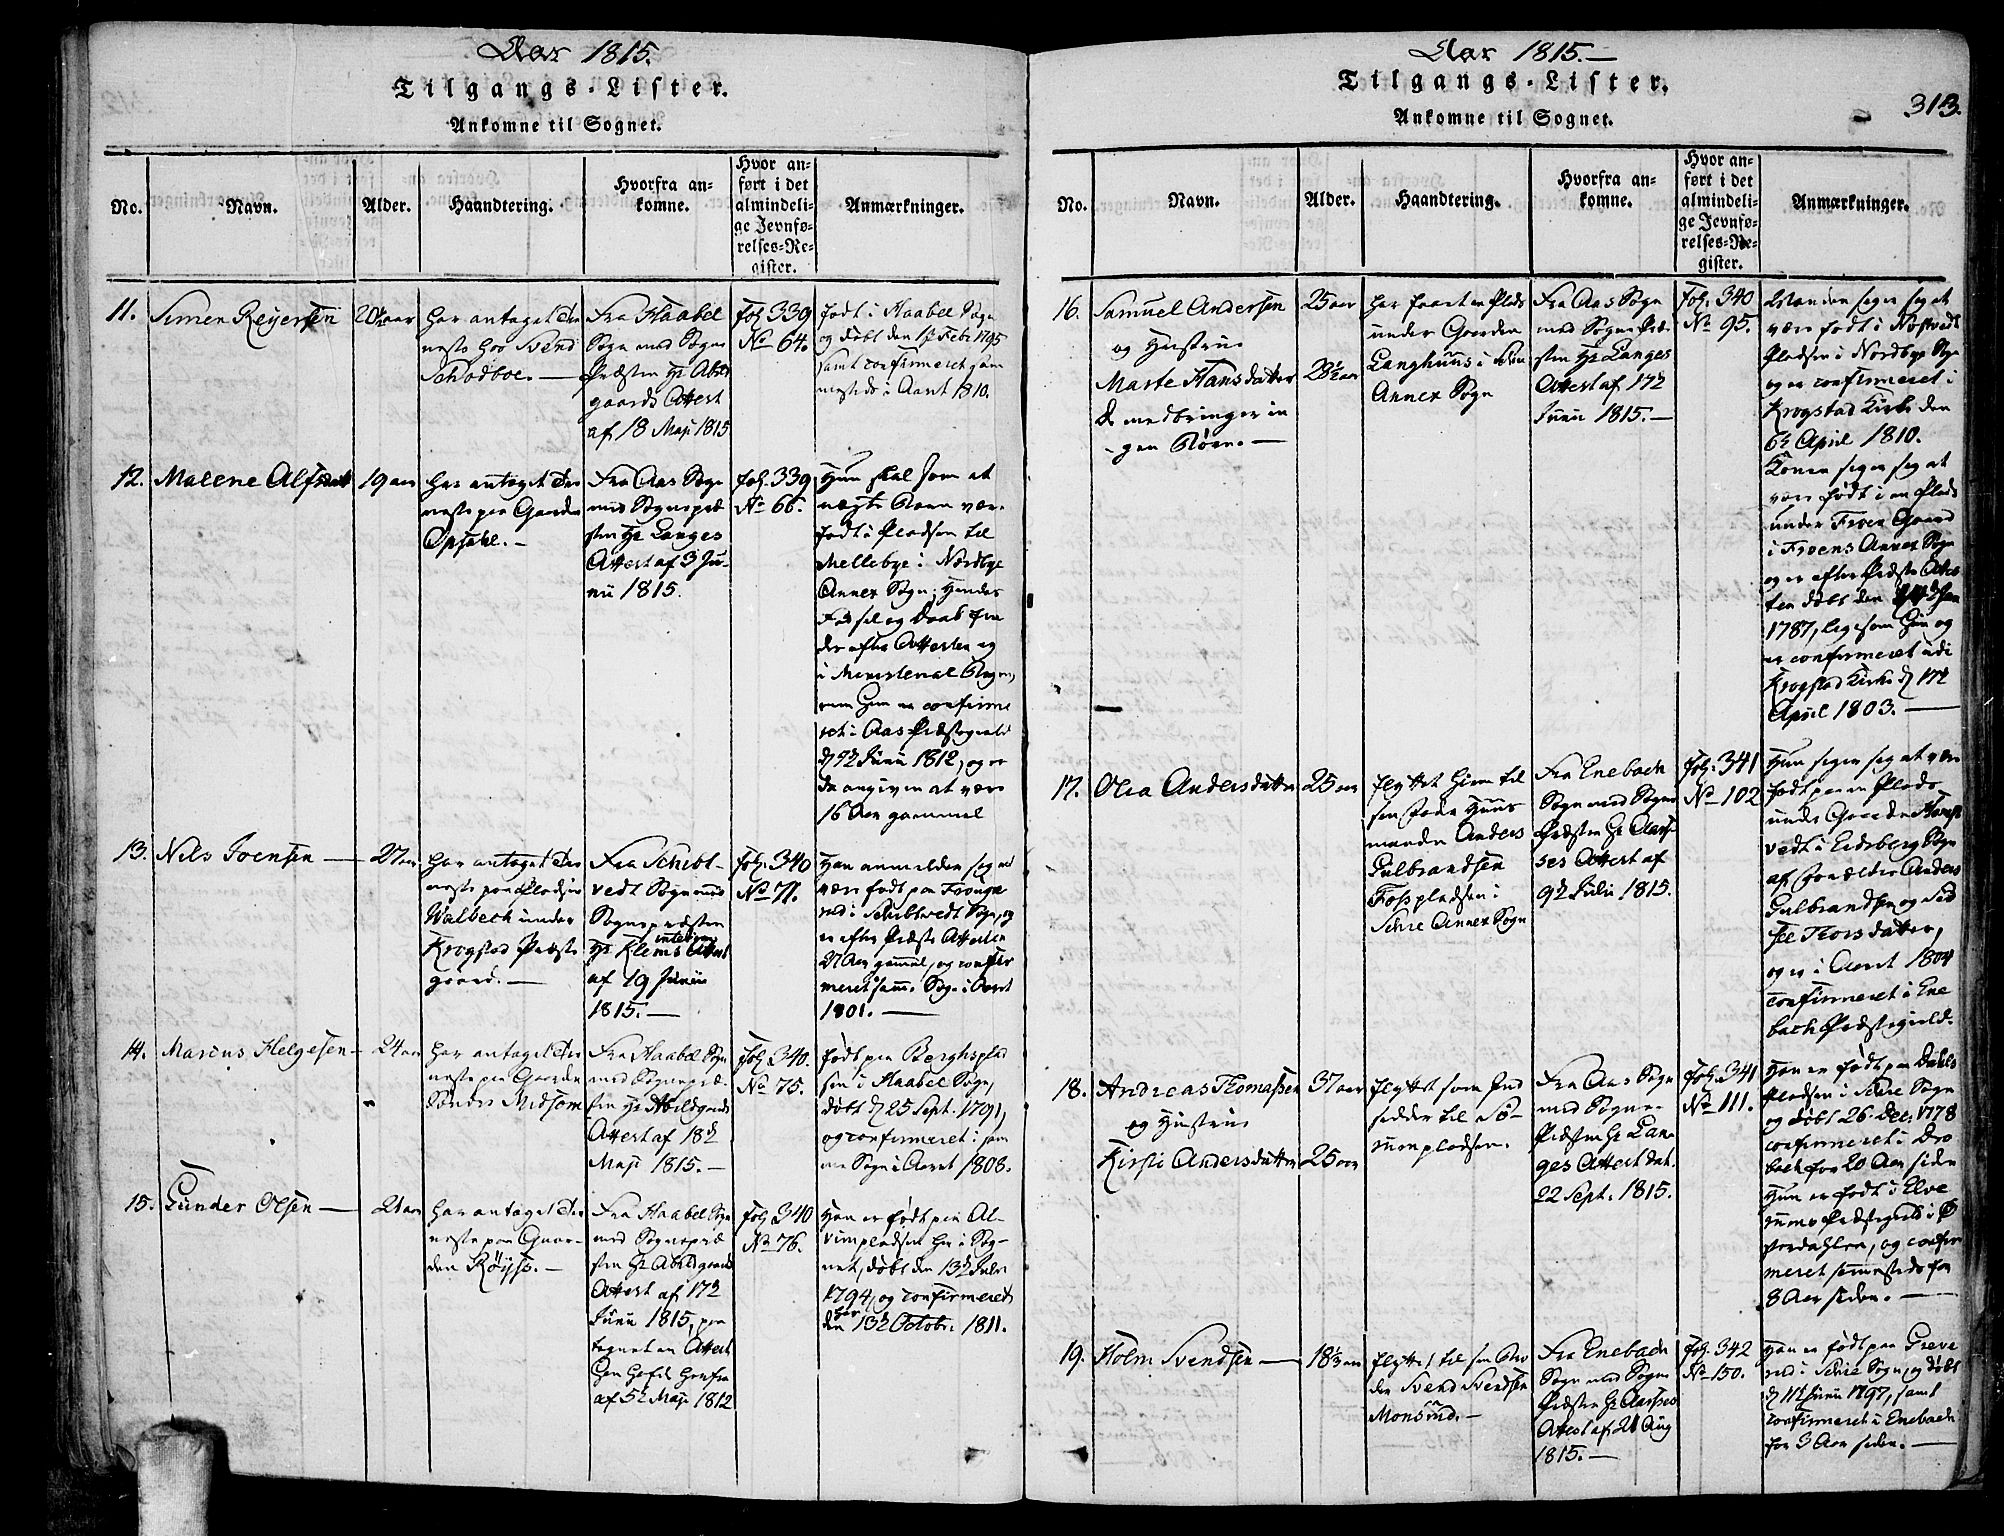 Aar 1815.
Tilgangs-Lister.
Ankomne til Sognet.
No.
Navn.
Alder.
Haandtering.
Hvorfra an-
komne.
Hvor an-
ført i det
almindeli-
ge Jevnfø-
relses-Re-
gister.
Anmærkninger.
11.
Simen Reyersen
20½ aar
har antaget Tie
neste hos Svend
Schodboe.—
Fra Haabel
Sogn med Sogne
Præsten Hr Abild
gaards Attest
af 18 Maji 1815
Fol. 339
No 64.
født i Haabel Sogn
og døbt den 1 Febr 1795
samt confirmeret sam
mesteds i Aaret 1810.
12.
Malene Alfsdatt
19 aar
har antaget Tie
neste paa Gaarden
Opsahl.—
Fra Aas Sogn
med Sognepræ
sten Hr Langes
Attest af 3 Ju-
nii 1815.
Fol. 339
No 66.
Hun skal som et
uægte Barn være
født i Pladsen til
Mellebye i Nordbye
Annex Sogn; hendes
Fødsel og Daab fin
des efter Attesten ej
i Ministerial Bogen,
men hun er confirme
ret i Aas Præstegield
1812, og er
da angiven at være
16 Aar gammel
13.
Nils Joensen —
27 aar
har antaget Tie
neste paa Pladsen
Walbech under
Krogstad Præste
gaard.—
Fra Schibt-
vedt Sogn med
Sognepræsten
Hr Klems Attest
af 19 Junii
1815.—
Fol. 340
No 71.
Han anmelder sig at
være født paa
i Schibtvedt Sogn, og
er efter Præstens Attest
27 Aar gammel, og confir
meret i samme Sogn i Aaret
1801.—
14.
Marcus Helgesen —
24 aar
har antaget Tie
neste paa Gaarden
Søndre Midsom
Fra Haabel Sogn
med Sognepræ-
sten Hr Abildgaards
Attest af 18de
Maji 1815.—
Fol. 340.
No 75.
født paa Berghsplad
sen i Haabel Sogn,
døbt d 25 Sept. 1791,
og confirmeret i sam
me Sogn i Aaret 1808.
15.
Gunder Olsen —
21 aar
har antaget Tie
neste paa Gaar-
den Røiss.—
Fra Haabel Sogn
med Sognepræ
sten Hr Abildgaards
Attest af 17de
Junii 1815, paa
tegnet en Attest
han havde herfra
af 5te Maji 1812
Fol. 340
No 76.
Han er født paa Al-
vimpladsen her i Sog-
net, døbt den 13de Julii
1794, og confirmeret
her
den 13de Octobr. 1811.
Aar 1815.—
Tilgangs-Lister.
Ankomne til Sognet.
313.
No.
Navn.
Alder.
Haandtering.
Hvorfra an-
komne.
Hvor an-
ført i det
almindeli-
ge Jevnfø-
relses-Re-
gister.
Anmærkninger.
16.
Samuel Andersen
og Hustrue
Marte Hansdatter
De medbringer in
gen Børn.—
25 aar
28½ aar
har faaet en Plads
under Gaarden
Langhuus i
Annex Sogn
Fra Aas Sogn
med Sogne Præ
sten Hr Langes
Attest af 17de
Junii 1815.—
Fol. 340
No 95.
Manden siger sig at
være født i Nøstvedt
Pladsen i Nordbye Sogn
og er confirmeret i
Krogstad Kirke den
April 1810.
Konen siger sig at
være født i en Plads
under Froen Gaard
i Froens Annex Sogn
og er efter Præstens Attes
ten døbt den
1787, ligesom hun og
er confirmeret udi
Krogstad Kirke d 17de
April 1803.—
17.
Olea Andersdatter
25 aar
flyttet hiem til
sin Fader Huus
manden Anders
Gulbrandsen
Fospladsen i
Schie Annex Sogn
Fra Enebach
Sogn med Sogne
Præsten Hr Aars-
ses Attest af
9de Julii 1815.
Fol. 341
No 102
Hun siger sig at være
født paa en Plads
under Gaarden
vedt i Eidsberg Sogn
af Forældre Anders
Gulbrandsen og Sid
sel Thorsdatter,
og er i Aaret 1804
confirmeret i Ene
bach Præstegield.
18.
Andreas Thomassen
og Hustrue
Kirsti Andersdatter
37 aar
25 aar
flyttet som Ind
sidder til Si-
monpladsen.
Fra Aas Sogn
med Sogne-
Præsten Hr Lan-
ges Attest dat.
22 Sept. 1815.
Fol. 341
No 111.
Han er født paa Dahls
Pladsen i Schie Sogn
og døbt 26. Dec. 1778
confirmeret i Drø
bach for 20 Aar siden
Hun er født i Elve
rums Præstegield i Ø
sterdahlen, og confir
meret sammesteds for
8 Aar siden.—
19.
Holm Svendsen —
18⅓ aar
flyttet til sin Bro
der Svend Svendsen
Monsrud.—
Fra Enebach
Sogn med Sogne
Præsten Hr Aarsses
Attest af 21 Aug
1815.—
Fol. 342
No 150.
Han er født paa Greve
rud i Schie Sogn, og døbt
d 11 Junii 1797, samt
confirmeret i Enebach
for 3 Aar siden.—